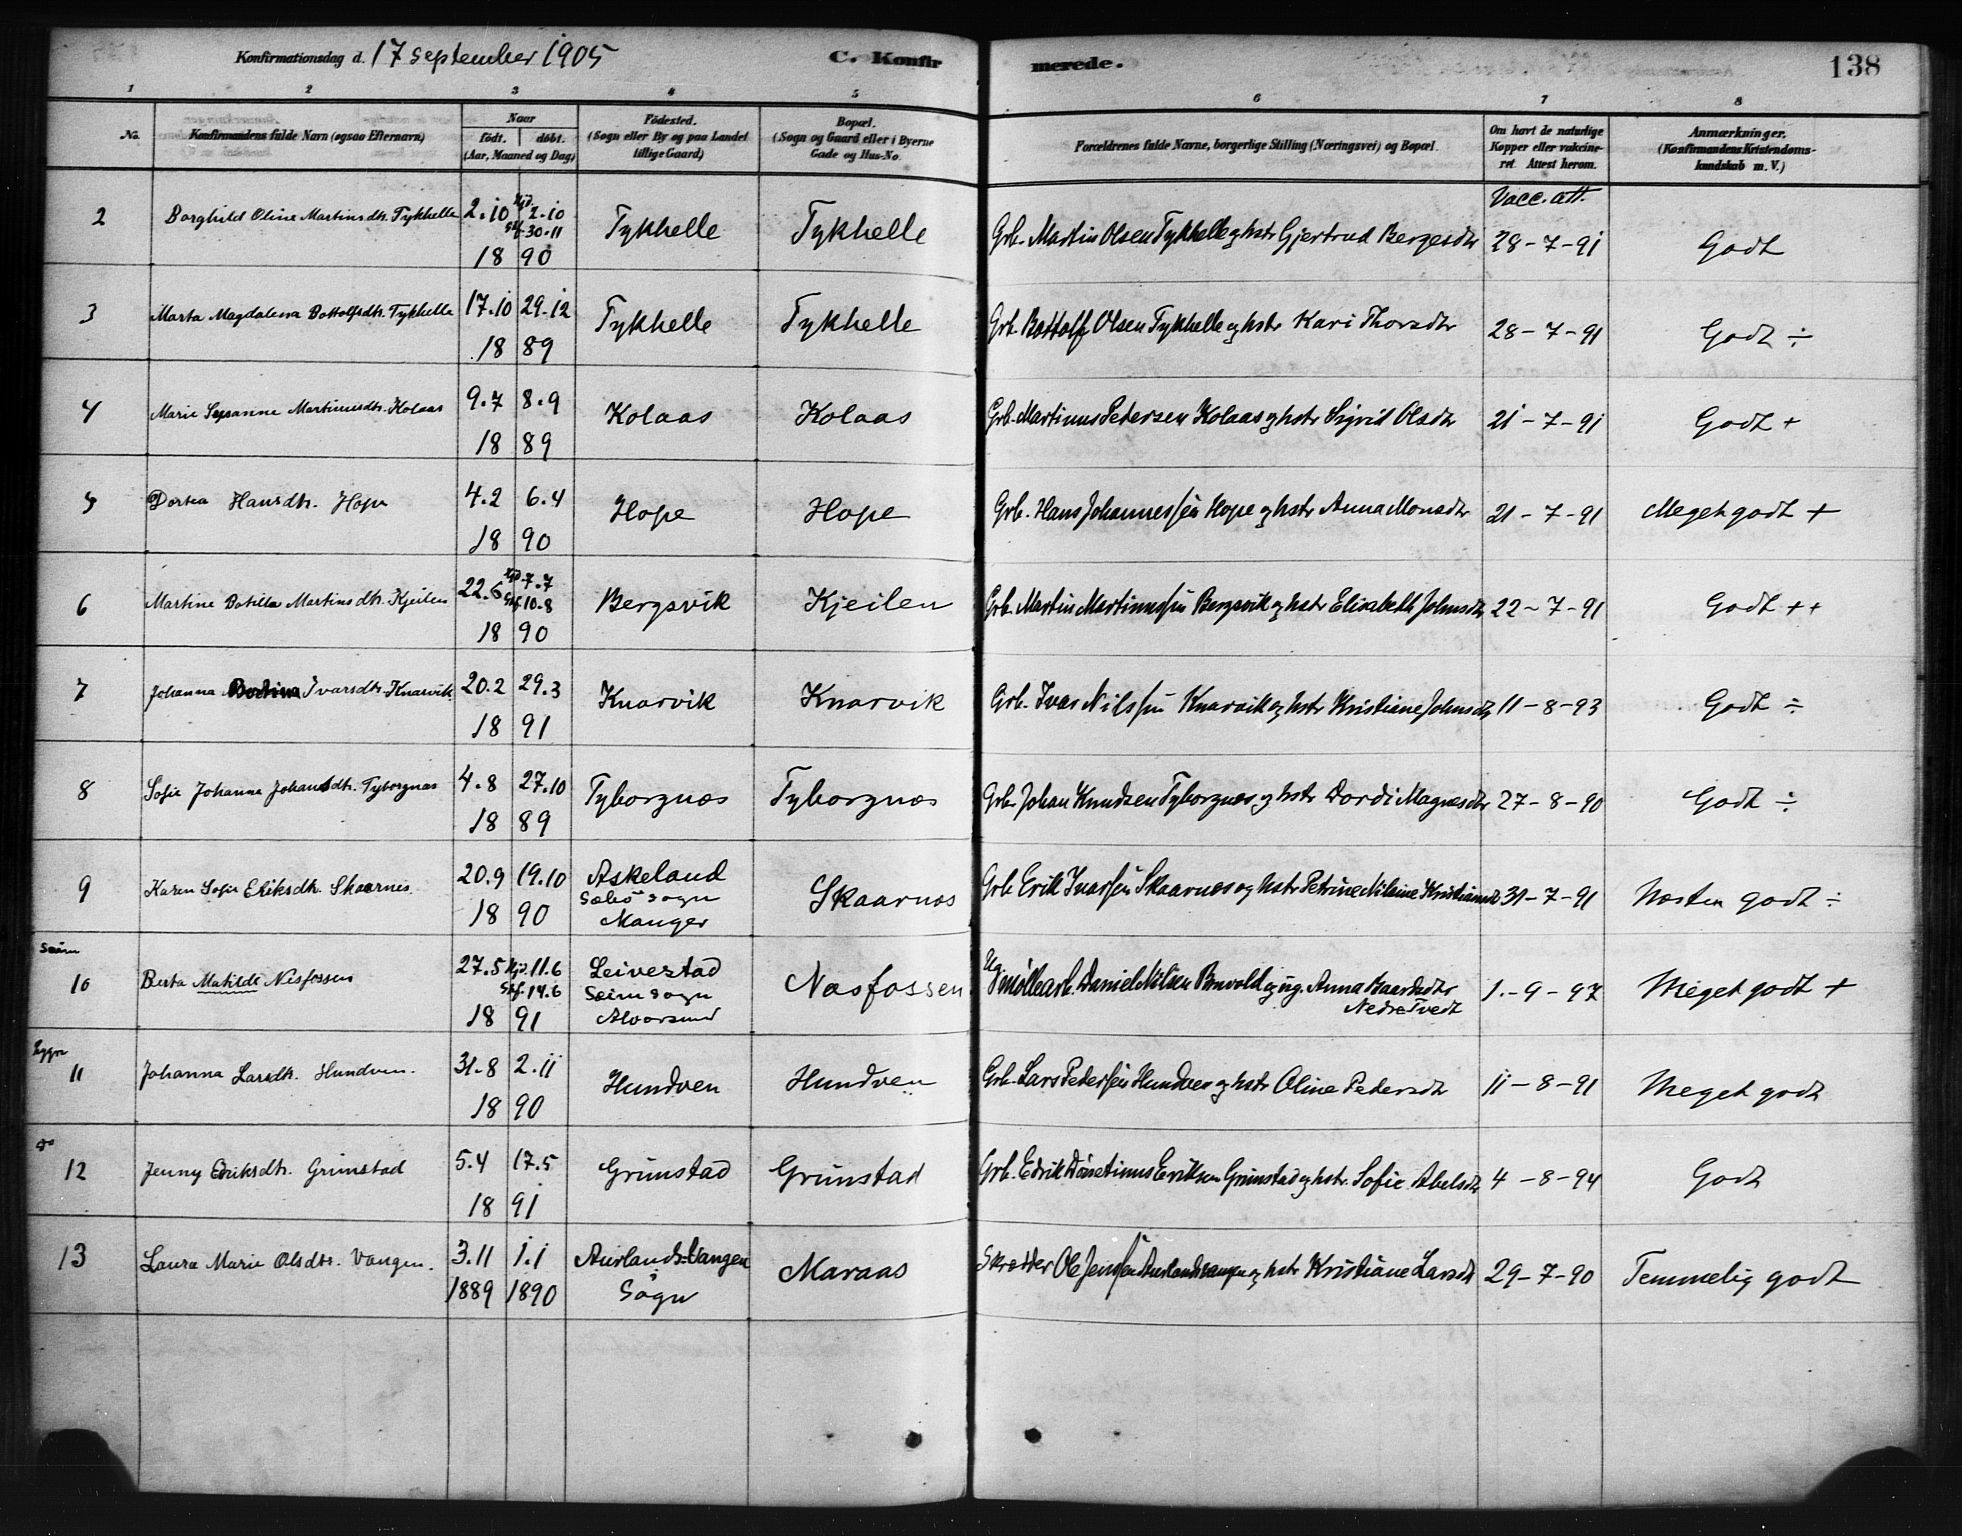 Konfirmationsdag d. 17 September 1905
C. Konfirmerede.
138
1 2 3 4 5 6 7 8
No. Konfirmandens fulde Navn (ogsaa Efternavn)
Naar født. døbt. (Aar, Maaned og Dag)
Födested. (Sogn eller By og paa Landet tillige Gaard)
Bopæl. (Sogn og Gaard eller i Byerne Gade og Hus-No.
Forældrenes fulde Navne, borgerlige Stilling (Næringsvei) og Bopæl.
Om havt de naturlige Kopper eller vakcineret. Attest herom.
Anmærkninger. (Konfirmandens Kristendomskundskab m. V.)
Vacc. att.
2 Borghild Oline Martinsdtr. Tykhelle 2.10 Hjd. 2.10 Stf. 30.11 1890 Tykhelle Tykhelle Grb. Martin Olsen Tykhelle og hstr Gjertrud Bergesdtr 28-7-91 Godt
3 Marta Magdalena Bottolfsdtr. Tykhelle 17.10 29.12 1889 Tykhelle Tykhelle Grb. Bottolf Olsen Tykhelle og hstr Kari Thorsdtr 28-7-91 Godt ÷
4 Marie Susanne Martinusdtr. Kolaas 9.7 8.9 1889 Kolaas Kolaas Grb. Martinus Pedersen Kolaas og hstr Sigrid Olsdtr 21-7-91 Godt +
5 Dortea Hansdtr. Hope 4.2 6.4 1890 Hope Hope Grb. Hans Johannessen Hope og hstr Anna Monsdtr 21-7-91 Meget godt +
6 Martine Botilla Martinsdtr. Kjeilen 22.6 Hjd. 7.7 Stf. 10.8 1890 Bergsvik Kjeilen Grb. Martin Martinussen Bergsvik og hstr Elisabeth Johnsdtr 22-7-91 Godt ++
7 Johanna Bertina Ivarsdtr. Knarvik 20.2 29.3 1891 Knarvik Knarvik Grb. Ivar Nilssen Knarvik og hstr Kristiane Johnsdtr 11-8-93 Godt ÷
8 Sofie Johanna Johansdtr. Tyborgnæs 4.8 27.10 1889 Tyborgnæs Tyborgnæs Grb. Johan Knudsen Tyborgnæs og hstr Dordi Magnesdtr 27-8-90 Godt ÷
9 Karen Sofie Eriksdtr. Skaarnes 20.9 19.10 1890 Askeland Sæbø sogn Manger Skaarnæs Grb Erik Ivarsen Skaarnæs og hstr Petrine Nilsine Kristiansd 31-7-91 Næsten godt ÷
Seim
10 Berta Matilde Nesfossen 27.5 Hjd. 11.6 Stf. 14.6 1891 Leivestad Seim sogn Alversund Næsfossen Ug møllearb. Daniel Nilsen og ug. Anna Baardsdtr Nedre Tvedt 1.-9-97 Meget godt +
Lygre
11 Johanna Larsdtr. Hundven. 31.8 2.11 1890 Hundven Hundven Grb. Lars Pedersen Hundven og hstr Oline Pedersdtr 11-8-91 Meget godt
Do
12 Jenny Edriksdtr. Grimstad 5.4 17.5 1891 Grimstad Grimstad Grb. Edrik Eriksen Grimstad og hstr. Sofie Abelsdtr 4-8-94 Godt
13 Laura Marie Olsdtr. Vangen. 3.11 1889 1.1 1890 Aurlands-Vangen Sogn Maraas Skrædder Ole Jensen Aurlandsvangen og hstr Kristiane Larsdtr 29-7-90 Temmelig godt